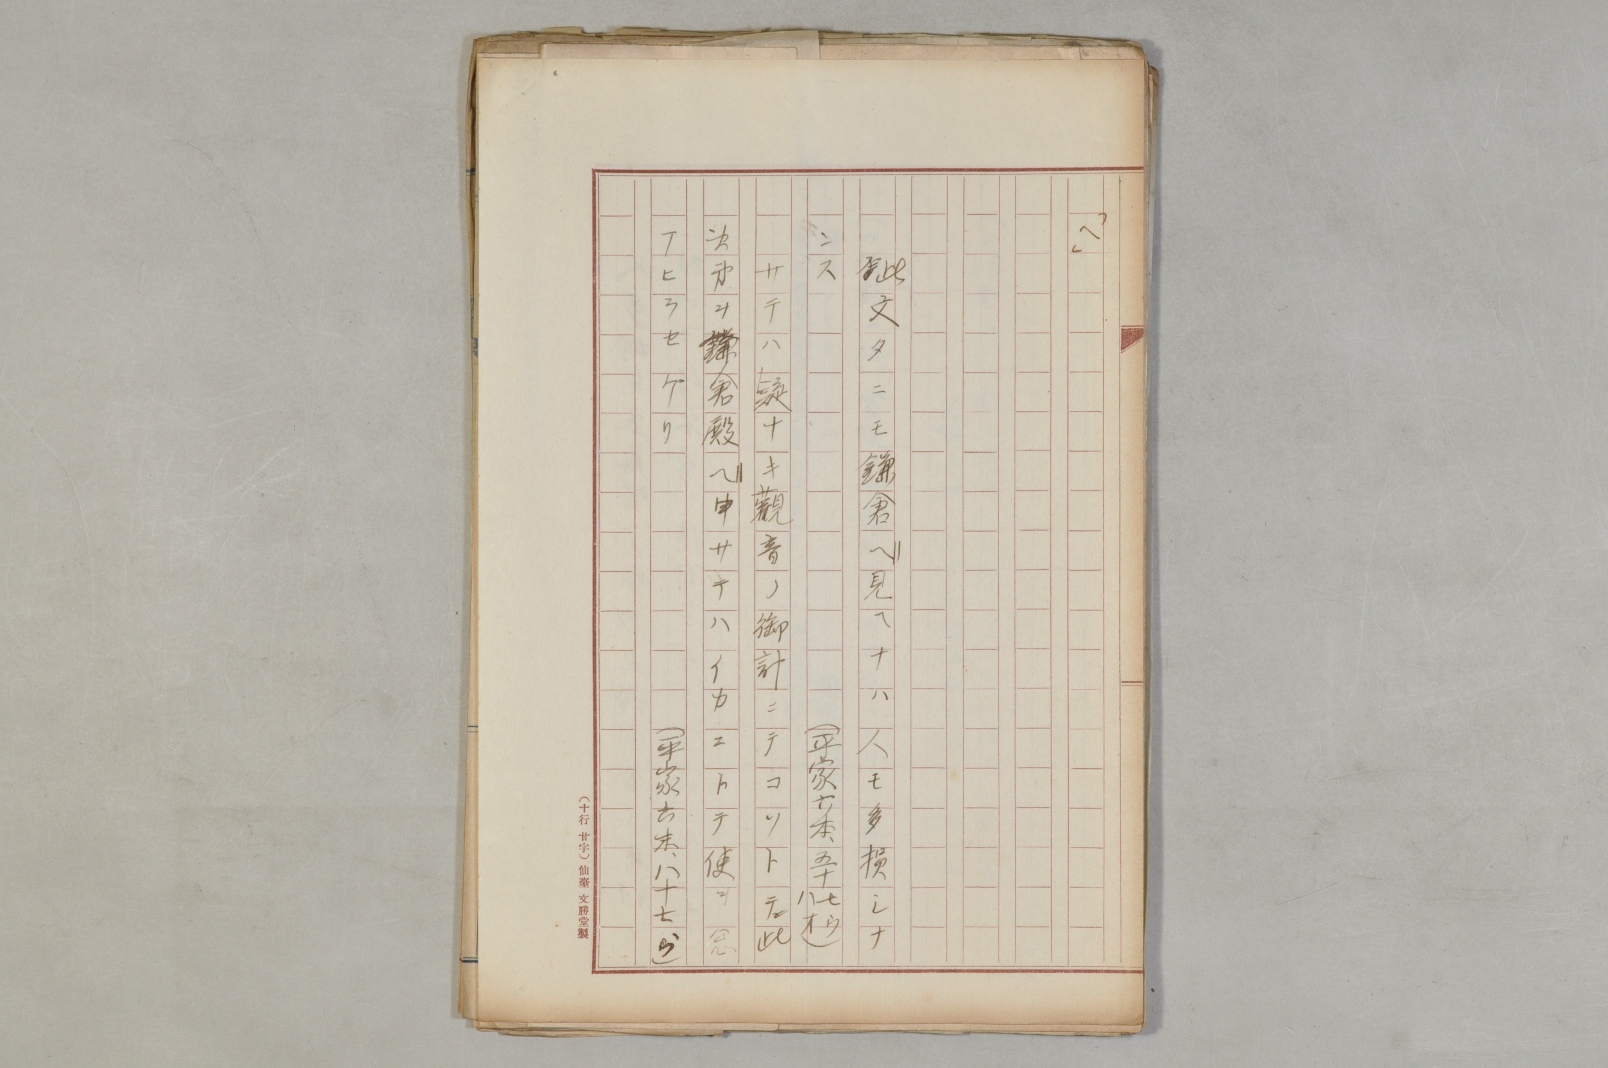 「へ」
此文タニモ鎌倉へ見ヘナハ人モ多損シナ
ンス
(平家六本、五十七ウ
サテハ疑ナキ觀音ノ御計ニテコソトテ此
ヲ鎌倉殿ヘ申サテハイカエトテ使ヲ
アヒラセケリ
(平家六末、八十七ウ)
(十行 廿字) 仙臺 文勝堂製